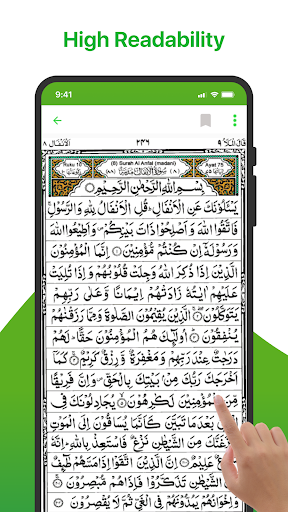 High Readability
9:41
قَالَ الْمَلَاُ ٩
٢٣٦
الْاَنْفَال ٨
Ruku 10
(8) Surah Al Anfal (madani)
Ayat 75
بِسْمِ اللهِ الرَّحْمٰنِ الرَّحِيْمِ
يَسْـَٔلُوْنَكَ عَنِ الْاَنْفَالِ قُلِ الْاَنْفَالُ لِلّٰهِ وَالرَّسُوْلِ
فَاتَّقُوا اللهَ وَاَصْلِحُوْا ذَاتَ بَيْنِكُمْ وَاَطِيْعُوا اللهَ
وَرَسُوْلَهٗٓ اِنْ كُنْتُمْ مُّؤْمِنِيْنَ اِنَّمَا الْمُؤْمِنُوْنَ
الَّذِيْنَ اِذَا ذُكِرَ اللهُ وَجِلَتْ قُلُوْبُهُمْ وَاِذَا تُلِيَتْ
عَلَيْهِمْ اٰيٰتُهٗ زَادَتْهُمْ اِيْمَانًا وَّعَلٰى رَبِّهِمْ
يَتَوَكَّلُوْنَ الَّذِيْنَ يُقِيْمُوْنَ الصَّلٰوةَ وَمِمَّا رَزَقْنٰهُمْ
يُنْفِقُوْنَ اُولٰٓئِكَ هُمُ الْمُؤْمِنُوْنَ حَقًّا لَهُمْ
دَرَجٰتٌ عِنْدَ رَبِّهِمْ وَمَغْفِرَةٌ وَّرِزْقٌ كَرِيْمٌ كَمَآ
اَخْرَجَكَ رَبُّكَ مِنْ بَيْتِكَ بِالْحَقِّ وَاِنَّ فَرِيْقًا
مِّنَ الْمُؤْمِنِيْنَ لَكٰرِهُوْنَ يُجَادِلُوْنَكَ
بَعْدَ مَا تَبَيَّنَ كَاَنَّمَا
مِنَ الشَّيْطٰنِ نَزْغٌ فَاسْتَعِذْ بِاللهِ
عَلِيْمٌ اِنَّ الَّذِيْنَ اتَّقَوْا اِذَا مَسَّهُمْ طٰٓئِفٌ
مِّنَ الشَّيْطٰنِ تَذَكَّرُوْا فَاِذَا هُمْ مُّبْصِرُوْنَ
وَاِخْوَانُهُمْ يَمُدُّوْنَهُمْ فِي الْغَيِّ ثُمَّ لَا يُقْصِرُوْنَ